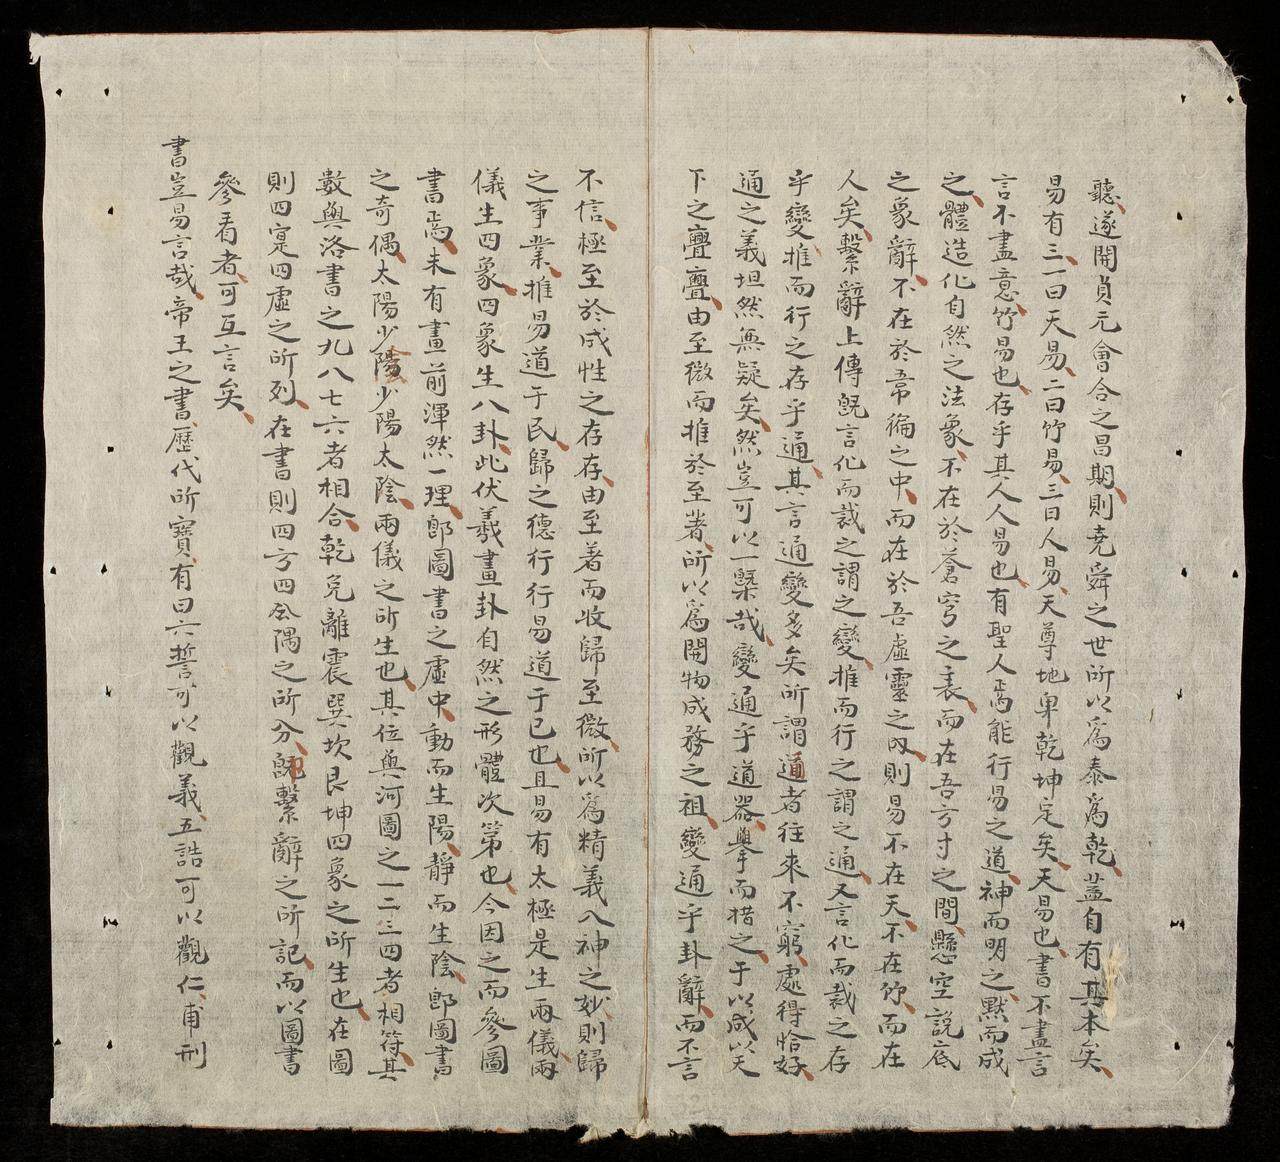 聽遂開貞元會合之昌期則堯舜之世所以爲泰爲乾蓋自有其本矣
易有三一曰天易二曰竹易三曰人易天尊地卑乾坤定矣天易也書不盡言
言不盡意竹易也存乎其人人易也有聖人焉能行易之道神而明之默而成
之體造化自然之法象不在於蒼穹之表而在吾方寸之間懸空說底
之象辭不在於帛編之中而在於吾虛靈之內則易不在天不在竹而在
人矣繫辭上傳旣言化而裁之謂之變推而行之謂之通又言化而裁之存
乎變推而行之存乎通其言通變多矣所謂道者往來不窮處得恰好
通之義坦然無疑矣然豈可以一槩哉變通乎道器舉而措之于以成以天
下之亹亹由至微而推於至著所以爲開物成務之祖變通乎卦辭而不言
不信極至於成性之存存由至著而收歸至微所以爲精義入神之妙則歸
之事業推易道于民歸之德行行易道于已也且易有太極是生兩儀兩
儀生四象四象生八卦此伏羲畫卦自然之形體次第也今因之而參圖
書焉未有畫前渾然一理郎圖書之虛中動而生陽靜而生陰郎圖書
之奇偶太陽少陰少陽太陰兩儀之所生也其位與河圖之一二三四者相符其
數與洛書之九八七六者相合乾兌離震巽坎艮坤四象之所生也在圖
則四寔四虛之所列在書則四方四隅之所分觀繫辭之所記而以圖書
參看者可互言矣
書豈易言哉帝王之書歷代所寶有曰六誓可以觀義五誥可以觀仁甫刑